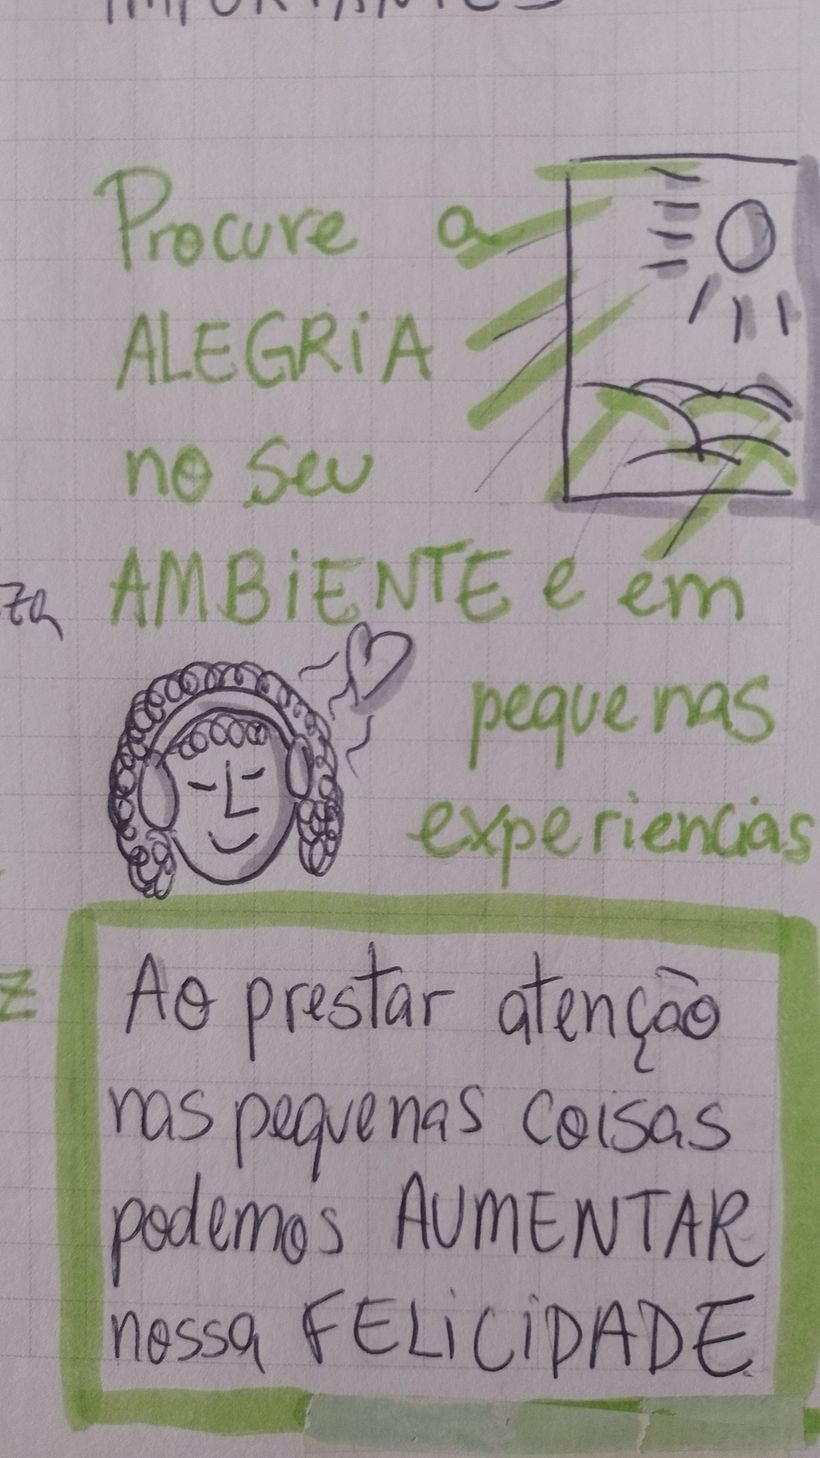 Procure a
ALEGRiA
no seu
AMBiENTE e em
pequenas
experiencias
Ao prestar atenção
nas pequenas coisas
podemos AUMENTAR
nossa FELiCiDADE